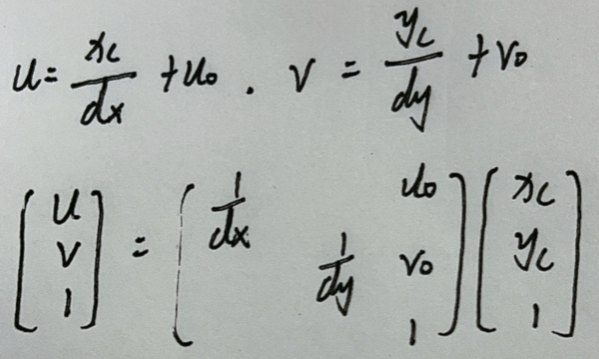 u = x_c/dx + u_0 . v = y_c/dy + v_0
[u v 1] = [1/dx u_0 1/dy v_0 1] [x_c y_c 1]